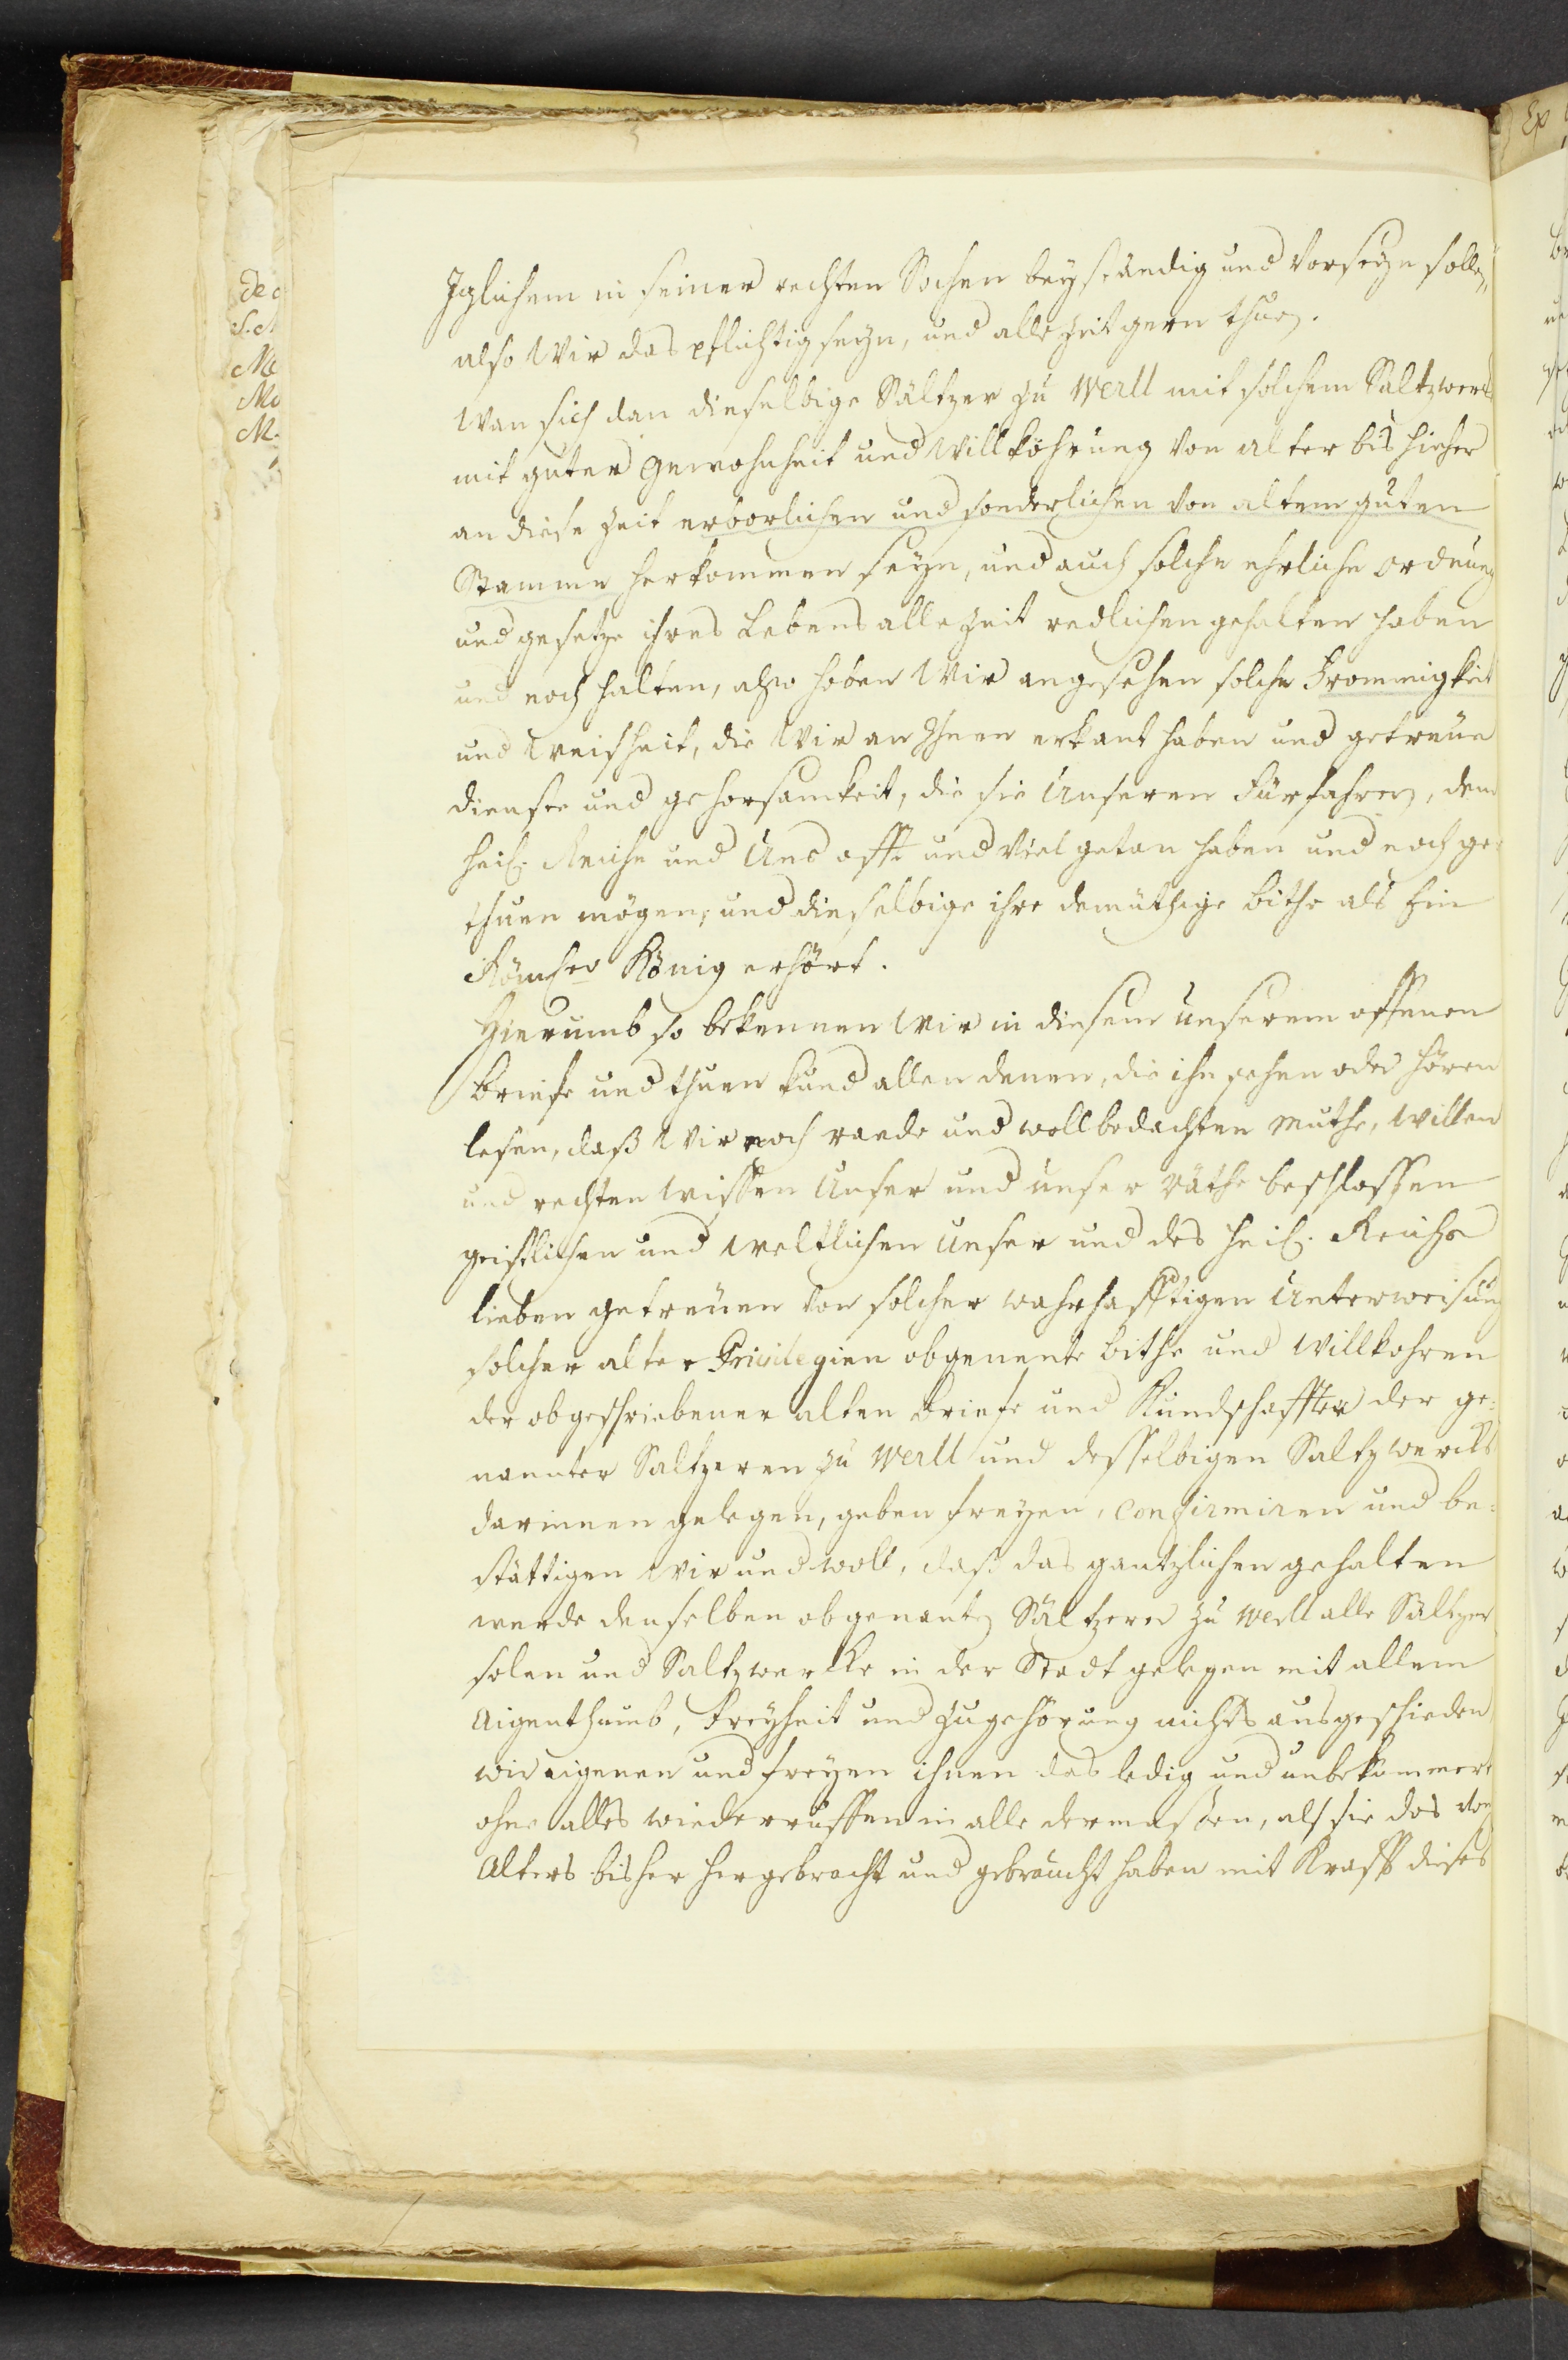 Iglichem in seiner rechten Sachen beyständig und vorseyn sollen,
also Wir das pflichtig seyn, und alle Zeit gern thuen.
Wan sich dan dieselbige Sältzer zu Werll mit solchem Saltzwerck
mit guter gewohnheit und Willköhrung von alter bis hieher
an diese Zeit erborlichen und sonderlichen von altem guten
Stamme herkommen seyn, und auch solche ehrliche ordnung
und gesetze ihres Lebens alle Zeit redlichen gehalten haben
und noch halten, also haben Wir angesehen solche Frommigkeit
und Weisheit, die Wir an Ihnen erkant haben und getreue
dienste und gehorsamkeit, die sie Unseren Fürfahren, dem
heil. Reiche und Uns offt und viel getan haben und noch ge-
thuen mögen, und dieselbige ihre demüthige bithe als Ein
Römscher König erhört.
Hierumb so bekennen Wir in diesem Unserem offenen
briefe und thuen kund allen denen, die ihn sehen oder hören
lesen, daß Wir noch raede und wollbedachten Muthe, Willen
und rechten Wissen Unser und unser räthe beschlossen
geistlichen und Weltlichen Unser und des heil. Reichs
lieben getreuen von solcher wahrhafftigen Unterweisung
solcher alter Privilegien obgenente bithe und Willkohren
der obgeschriebener alten briefe und Kundschaffter der ge-
nannter Saltzeren zu Werll und desselbigen Saltzwercks
darinnen gelegen, geben freyen, confirmiren und be-
stättigen Wir und woll, daß das gantzlichen gehalten
werde denselben obgenanten Sältzeren zu Werll alle Sältzer
solen und Saltzwercke in der Stadt gelegen mit allem
Aigenthumb, Freyheit und Zugehörung nichts ausgeschieden
wir eigenen und freyen ihnen das ledig und unbekommert
ohne alles wiederruffen in alle dermassen, als sie das von
Alters bisher hergebracht und gebraucht haben mit Krafft dieses